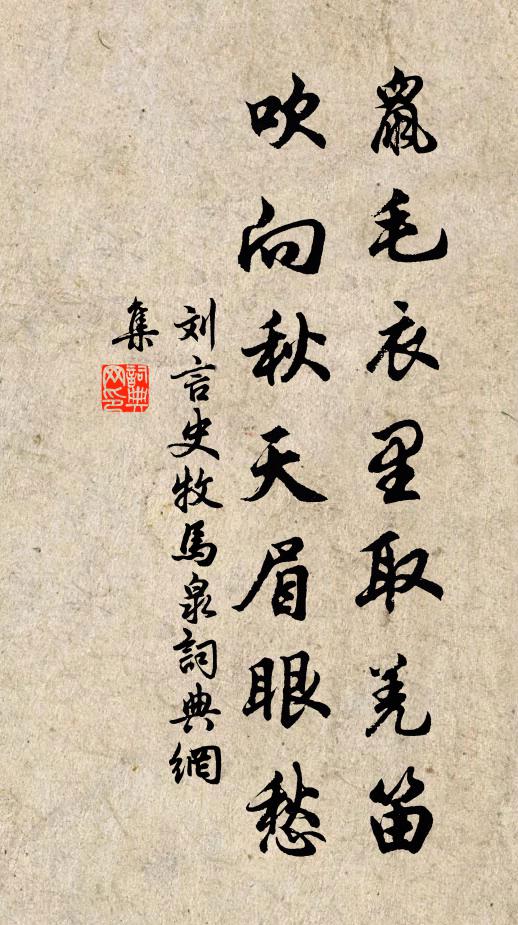 鼠毛衣里取羌笛
吹向秋天眉眼愁
刘言史牧馬泉詞典網
集
詞典
网印